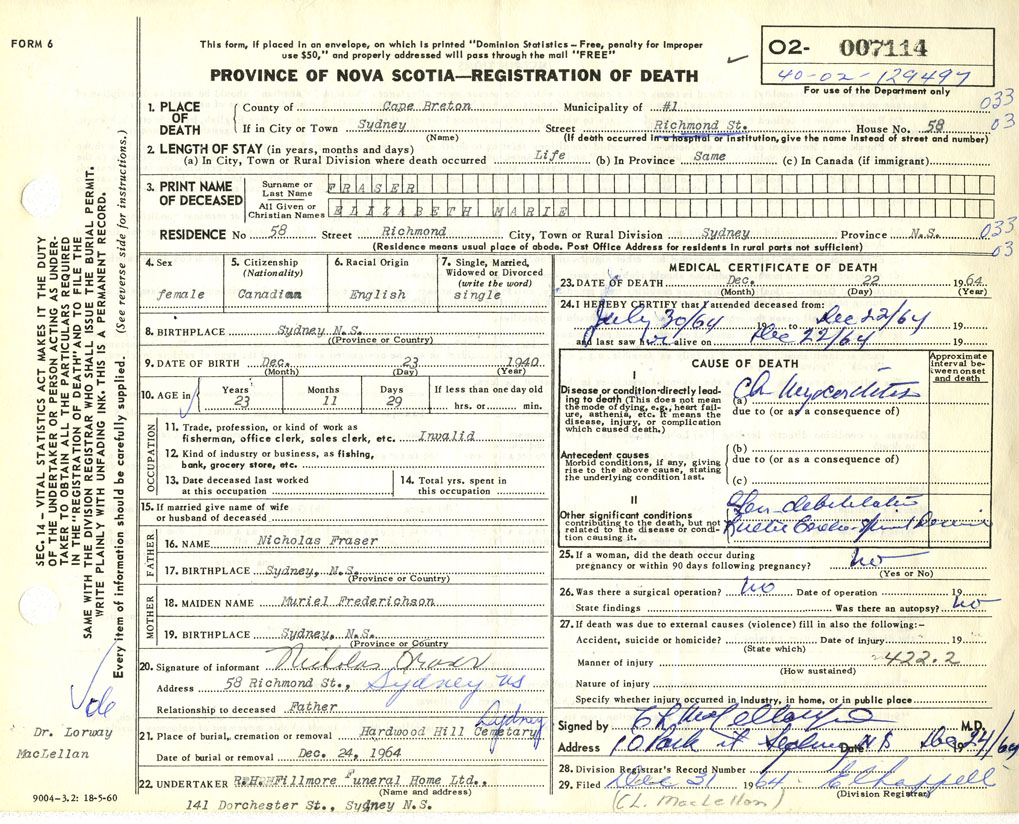 FORM 6
This form, if placed in an envelope, on which is printed "Dominion Statistics – Free, penalty for improper
use $50," and properly addressed will pass through the mail "FREE"
PROVINCE OF NOVA SCOTIA—REGISTRATION OF DEATH
02- 007114
40-02-129497
For use of the Department only
1. PLACE OF DEATH
County of Cape Breton Municipality of #1
033
If in City or Town Sydney Street Richmond St. House No. 58
03
(Name) (If death occurred in a hospital or institution, give the name instead of street and number)
2. LENGTH OF STAY (in years, months and days)
(a) In City, Town or Rural Division where death occurred Life (b) In Province Same (c) In Canada (if immigrant)
3. PRINT NAME OF DECEASED
Surname or Last Name FRASER
All Given or Christian Names ELIZABETH MARIE
RESIDENCE No 58 Street Richmond City, Town or Rural Division Sydney Province N.S.
033
03
(Residence means usual place of abode. Post Office Address for residents in rural parts not sufficient)
4. Sex
female
5. Citizenship
(Nationality)
Canadian
6. Racial Origin
English
7. Single, Married,
Widowed or Divorced
(write the word)
single
8. BIRTHPLACE Sydney N.S.
(Province or Country)
9. DATE OF BIRTH Dec. 23 1940
(Month) (Day) (Year)
10. AGE in
Years Months Days If less than one day old
23 11 29 hrs. or min.
OCCUPATION
11. Trade, profession, or kind of work as
fisherman, office clerk, sales clerk, etc. Invalid
12. Kind of industry or business, as fishing,
bank, grocery store, etc.
13. Date deceased last worked
at this occupation
14. Total yrs. spent in
this occupation
15. If married give name of wife
or husband of deceased
FATHER
16. NAME Nicholas Fraser
17. BIRTHPLACE Sydney, N.S.
(Province or Country)
MOTHER
18. MAIDEN NAME Muriel Frederichson
19. BIRTHPLACE Sydney, N.S.
(Province or Country)
20. Signature of informant Nicholas Fraser
Address 58 Richmond St., Sydney NS
Relationship to deceased Father
Sydney
21. Place of burial, cremation or removal Hardwood Hill Cemetary
Date of burial or removal Dec. 24, 1964
22. UNDERTAKER R.H. Fillmore Funeral Home Ltd.,
(Name and address)
141 Dorchester St., Sydney N.S.
MEDICAL CERTIFICATE OF DEATH
23. DATE OF DEATH Dec. 22 1964
(Month) (Day) (Year)
24. I HEREBY CERTIFY that I attended deceased from:
July 30/64 19 to Dec 22/64 19
and last saw her alive on Dec 22/64 19
CAUSE OF DEATH
Approximate
interval be-
tween onset
and death
I
Disease or condition directly lead-
ing to death (This does not mean
the mode of dying, e.g., heart fail-
ure, asthenia, etc. It means the
disease, injury, or complication
which caused death.)
(a) Ch Myocarditis
due to (or as a consequence of)
Antecedent causes
Morbid conditions, if any, giving
rise to the above cause, stating
the underlying condition last.
(b)
due to (or as a consequence of)
(c)
II
Other significant conditions
contributing to the death, but not
related to the disease or condi-
tion causing it.
Gen debilitation
25. If a woman, did the death occur during
pregnancy or within 90 days following pregnancy? no
(Yes or No)
26. Was there a surgical operation? no Date of operation 19
State findings Was there an autopsy? no
27. If death was due to external causes (violence) fill in also the following:–
Accident, suicide or homicide? Date of injury 19
(State which)
Manner of injury 422.2
(How sustained)
Nature of injury
Specify whether injury occurred in industry, in home, or in public place
Signed by M.D.
Address 10 Park St Sydney NS Date Dec 24/64 19
28. Division Registrar's Record Number
29. Filed Dec 31 1964 E Chappell
(Division Registrar)
(C.L. MacLellan)
SEC. 14 – VITAL STATISTICS ACT MAKES IT THE DUTY
OF THE UNDERTAKER OR PERSON ACTING AS UNDER-
TAKER TO OBTAIN ALL THE PARTICULARS REQUIRED
IN THE "REGISTRATION OF DEATH" AND TO FILE THE
SAME WITH THE DIVISION REGISTRAR WHO SHALL ISSUE THE BURIAL PERMIT.
WRITE PLAINLY WITH UNFADING INK. THIS IS A PERMANENT RECORD.
Every item of information should be carefully supplied. (See reverse side for instructions.)
Dr. Lorway
MacLellan
9004–3.2: 18-5-60